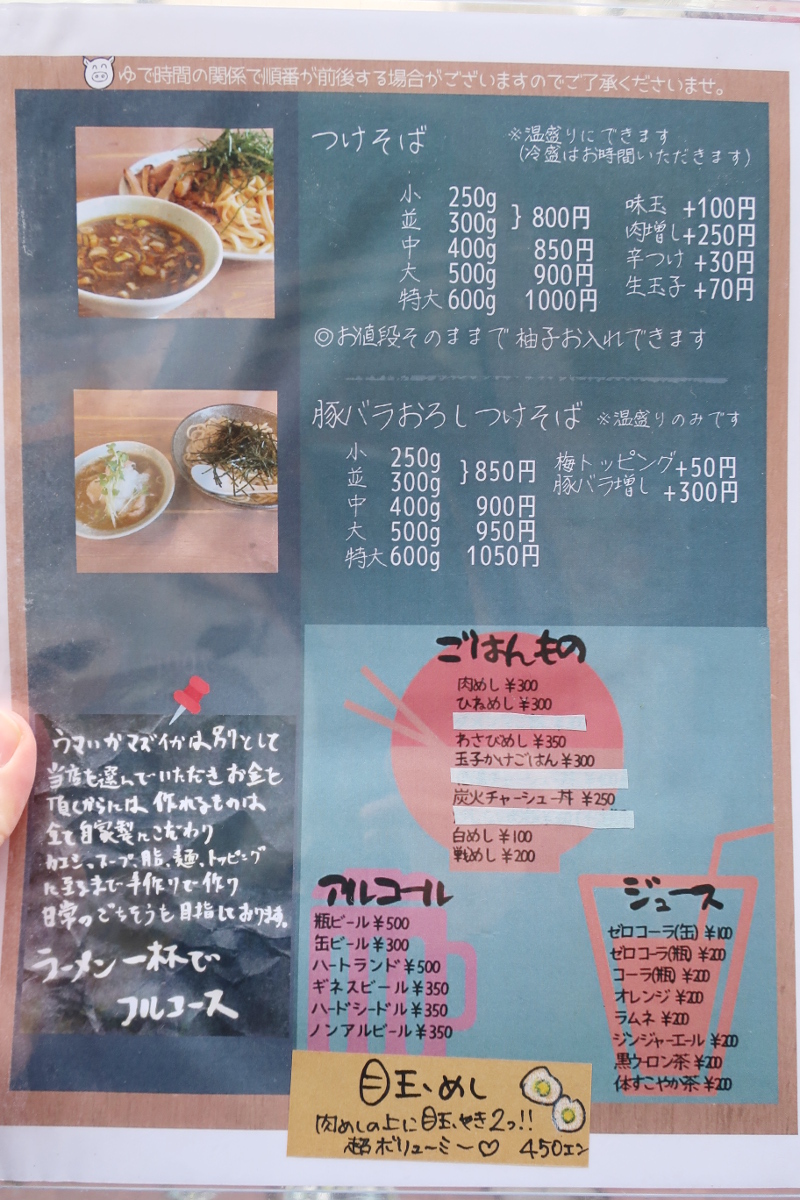 ゆで時間の関係で順番が前後する場合がございますのでご了承くださいませ。
つけそば
※温盛りにできます
(冷盛はお時間いただきます)
小 250g
並 300g } 800円
中 400g 850円
大 500g 900円
特大 600g 1000円
味玉 +100円
肉増し +250円
辛つけ +30円
生玉子 +70円
◎お値段そのままで柚子お入れできます
豚バラおろしつけそば ※温盛りのみです
小 250g
並 300g } 850円
中 400g 900円
大 500g 950円
特大 600g 1050円
梅トッピング +50円
豚バラ増し +300円
ごはんもの
肉めし ¥300
ひねめし ¥300
わさびめし ¥350
玉子かけごはん ¥300
炭火チャーシュー丼 ¥250
白めし ¥100
戦めし ¥200
ウマいかマズイかは別として
当店を選んでいただきお金を
頂くからには、作れるものは
全て自家製にこだわり
カエシ、スープ、脂、麺、トッピング
に至るまで手作りで作り
日常のごちそうも目指しております。
ラーメン一杯で
フルコース
アルコール
瓶ビール ¥500
缶ビール ¥300
ハートランド ¥500
ギネスビール ¥350
ハードシードル ¥350
ノンアルビール ¥350
ジュース
ゼロコーラ(缶) ¥100
ゼロコーラ(瓶) ¥200
コーラ(瓶) ¥200
オレンジ ¥200
ラムネ ¥200
ジンジャーエール ¥200
黒ウーロン茶 ¥200
体すこやか茶 ¥200
目玉めし
肉めしの上に目玉やき2つ!!
超ボリューミー♡ 450エン